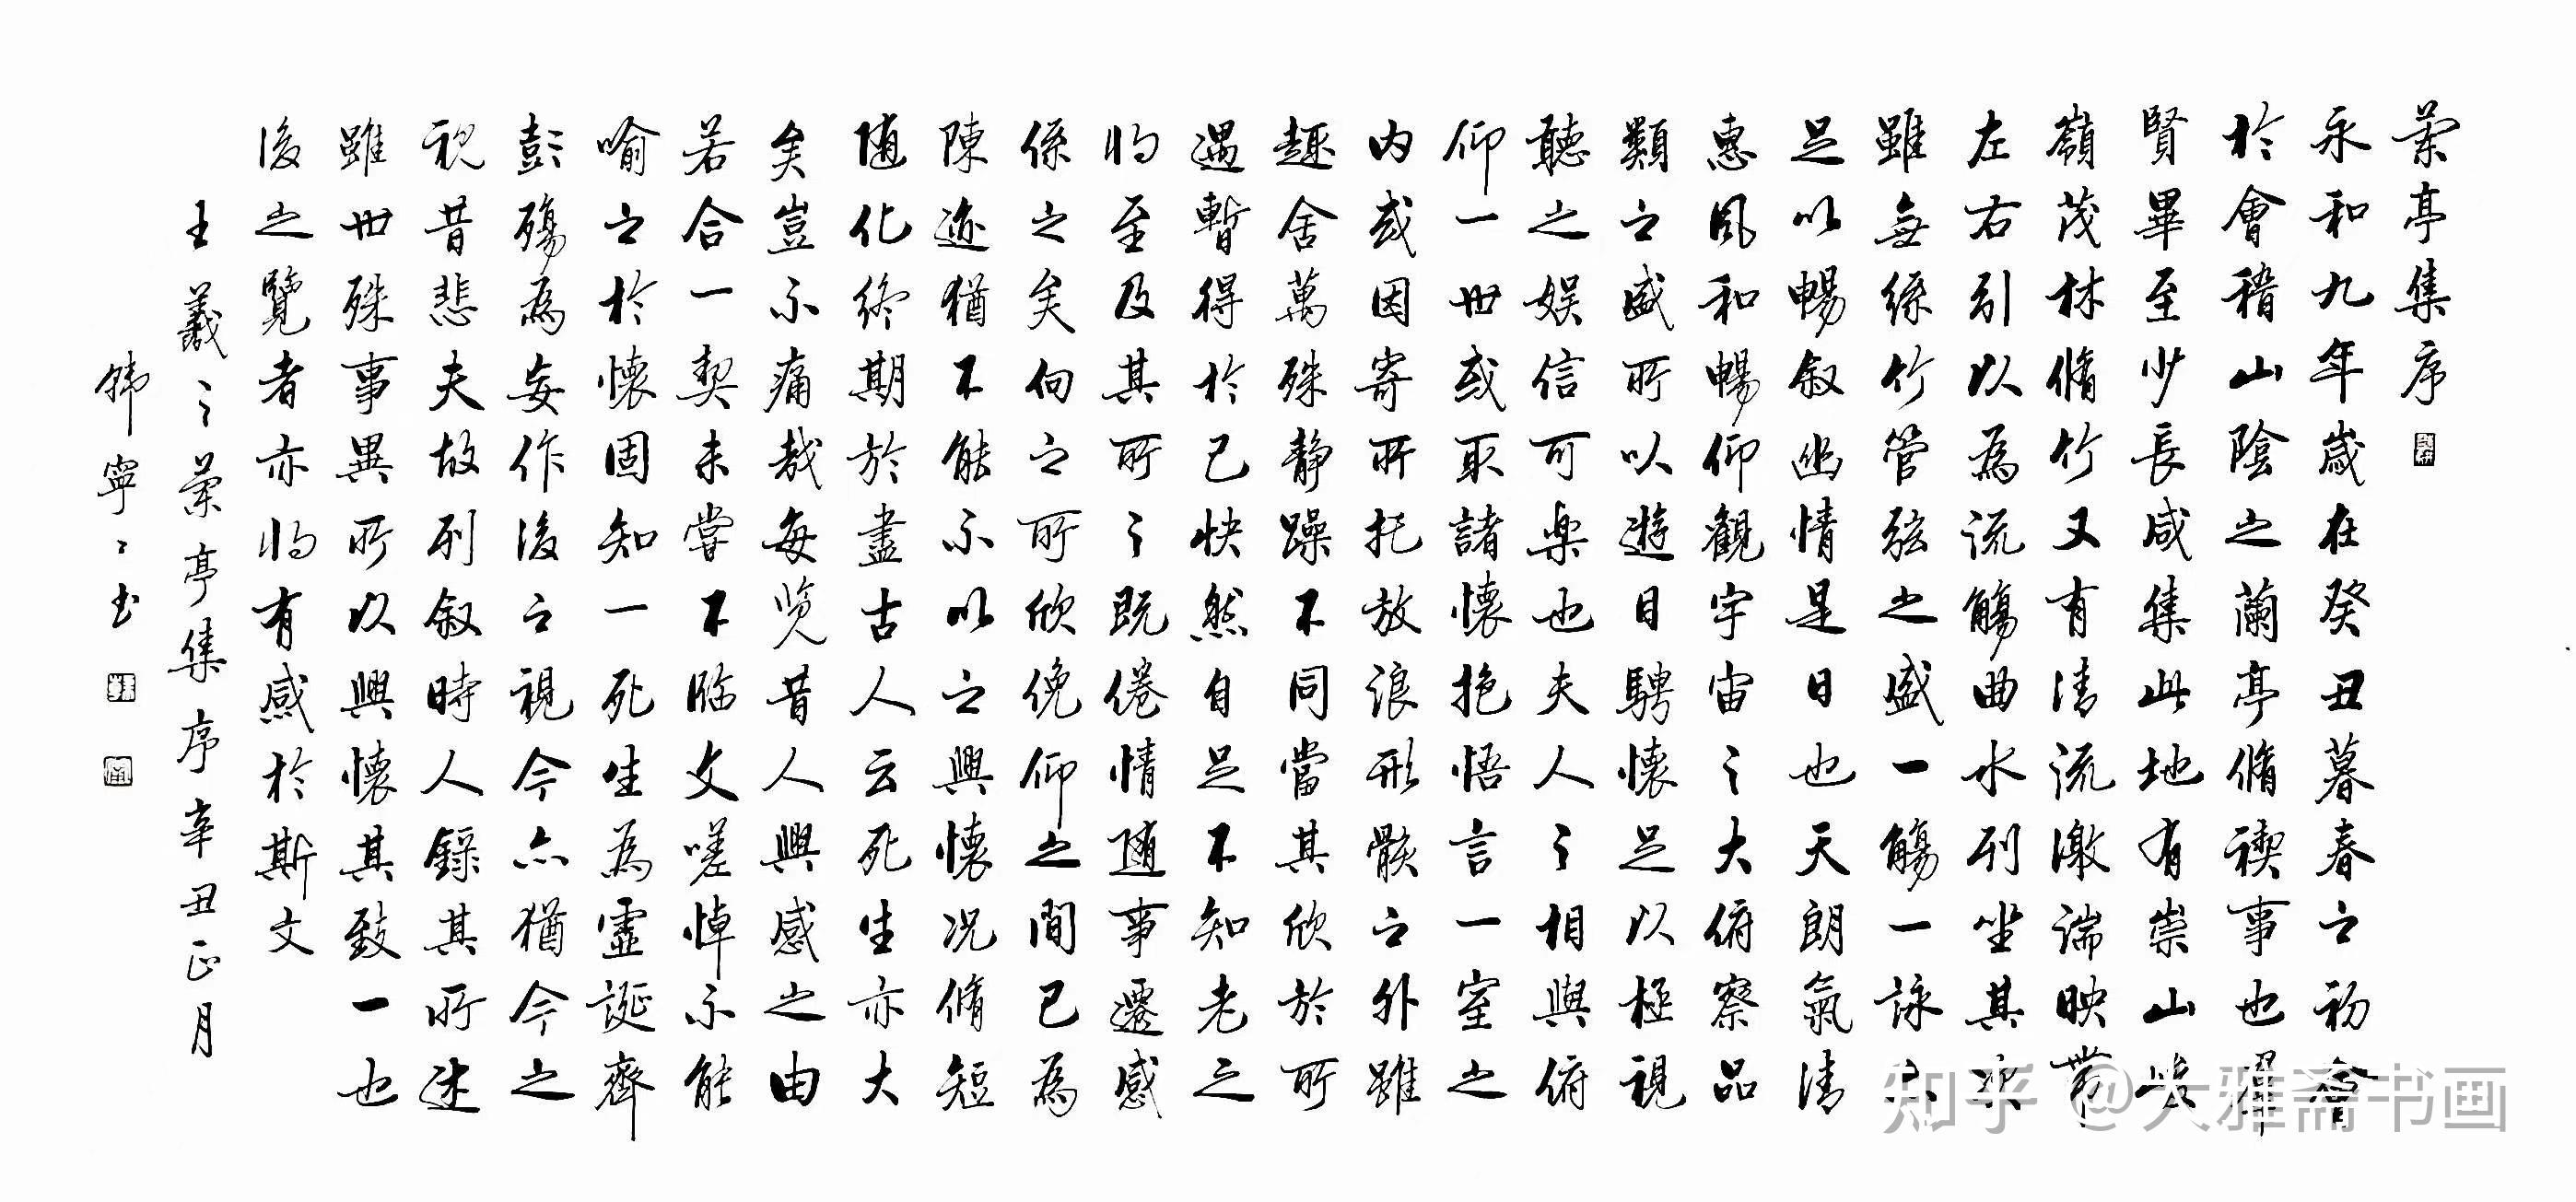 蘭亭集序
永和九年歲在癸丑暮春之初會
於會稽山陰之蘭亭脩禊事也羣
賢畢至少長咸集此地有崇山峻
嶺茂林脩竹又有清流激湍映帶
左右引以為流觴曲水列坐其次
雖無絲竹管弦之盛一觴一詠亦
足以暢叙幽情是日也天朗氣清
惠風和暢仰觀宇宙之大俯察品
類之盛所以遊目騁懷足以極視
聽之娛信可樂也夫人之相與俯
仰一世或取諸懷抱悟言一室之
內或因寄所托放浪形骸之外雖
趣舍萬殊静躁不同當其欣於所
遇暫得於己快然自足不知老之
將至及其所之既倦情隨事遷感
係之矣向之所欣俛仰之間已為
陳迹猶不能不以之興懷況脩短
隨化終期於盡古人云死生亦大
矣豈不痛哉每覽昔人興感之由
若合一契未嘗不臨文嗟悼不能
喻之於懷固知一死生為虛誕齊
彭殤為妄作後之視今亦猶今之
視昔悲夫故列叙時人錄其所述
雖世殊事異所以興懷其致一也
後之覽者亦將有感於斯文
王羲之蘭亭集序辛丑正月
韓寧寧書
知乎 @大雅斋书画